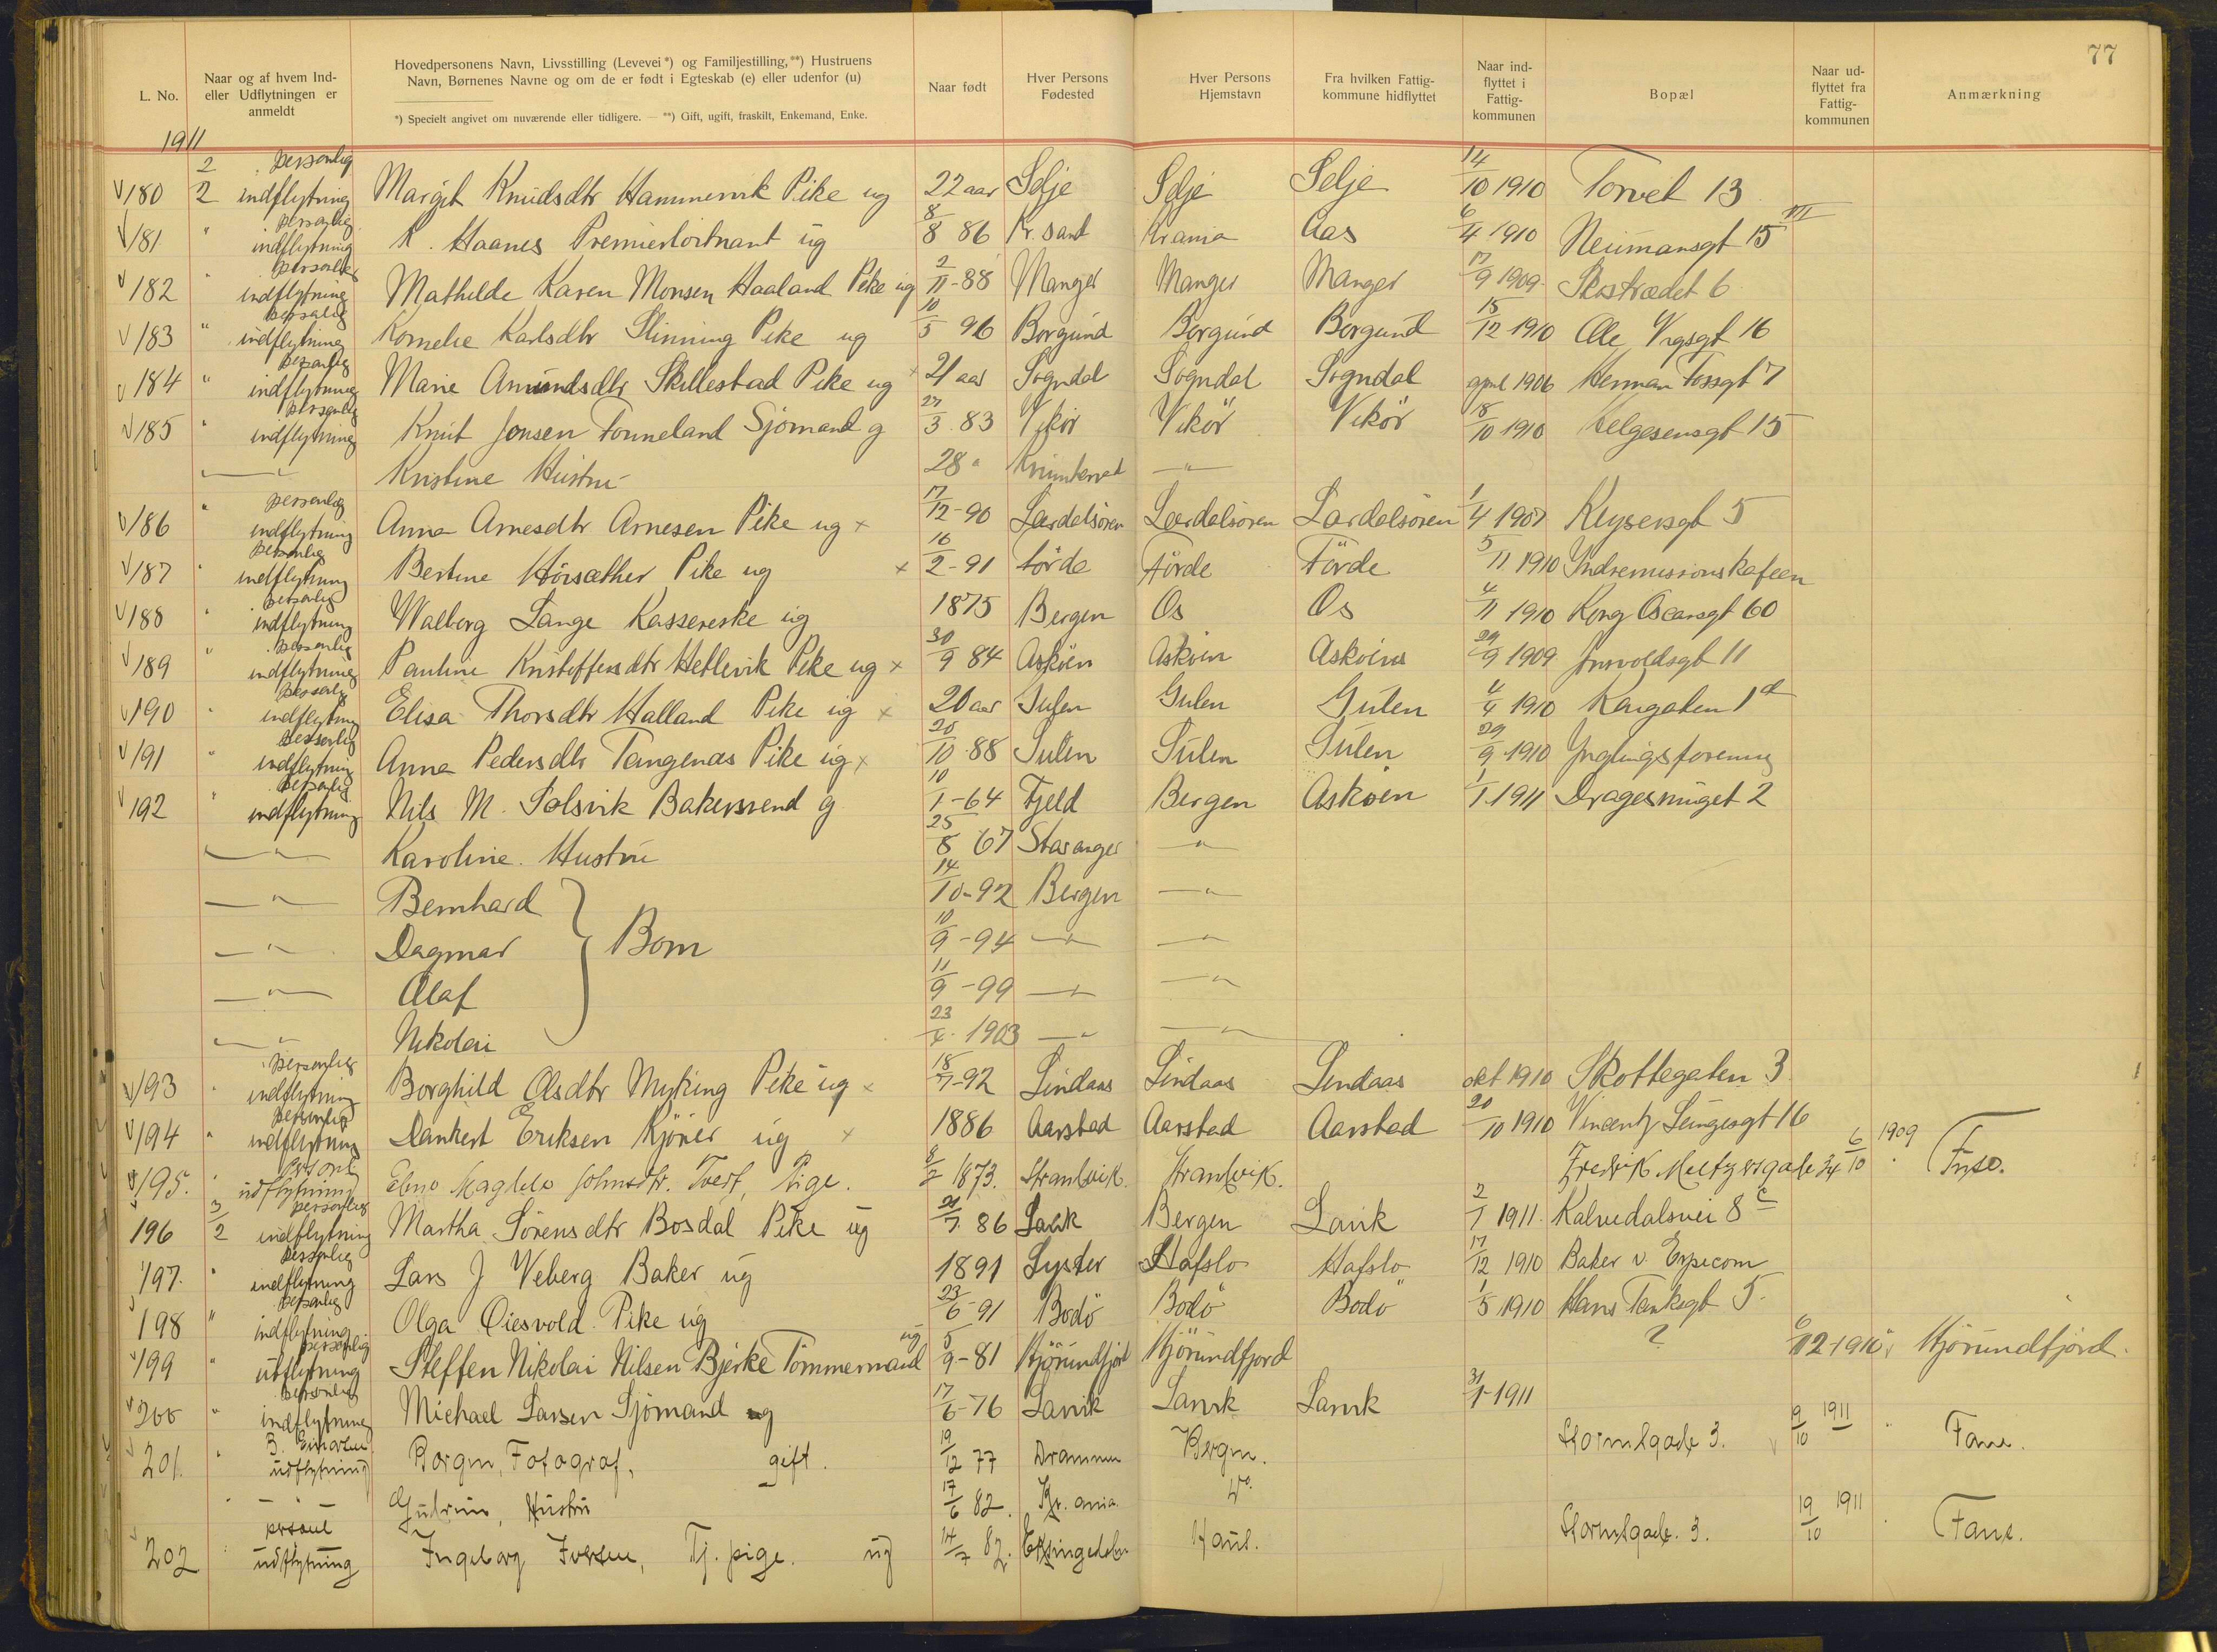 77
L. No.
Naar og af hvem Ind- eller Udflytningen er anmeldt
Hovedpersonens Navn, Livsstilling (Levevei *) og Familjestilling, **) Hustruens Navn, Børnenes Navne og om de er født i Egteskab (e) eller udenfor (u)
*) Specielt angivet om nuværende eller tidligere. — **) Gift, ugift, fraskilt, Enkemand, Enke.
Naar født
Hver Persons Fødested
Hver Persons Hjemstavn
Fra hvilken Fattig- kommune hidflyttet
Naar ind- flyttet i Fattig- kommunen
Bopæl
Naar ud- flyttet fra Fattig- kommunen
Anmærkning
1911
180 2/2 personlig indflytning Margit Knudsdtr Hammervik Pike ug 22 aar Selje Selje Selje 14/10 1910 Torvet 13
181 " personlig indflytning K. Haanes Premierloitnant ug 8/8 86 Kr. sand Krania Aas 6/4 1910 Neumansgt 15 III
182 " personlig indflytning Mathilde Karen Monsen Haaland Pike ug 2/11-88 Manger Manger Manger 17/9 1909 Skostrædet 6
183 " personlig indflytning Kornelie Karlsdtr Slinning Pike ug 10/5 96 Borgund Borgund Borgund 15/12 1910 Ole Vigsgt 16
184 " personlig indflytning Marie Amundsdtr Skillestad Pike ug x 21 aar Sogndal Sogndal Sogndal april 1906 Herman Fossgt 7
185 " personlig indflytning Knut Jonsen Tonneland Sjömand g 27/3 83 Vikör Vikör Vikör 18/10 1910 Helgesensgt 15
— " — Kristine Hustru 28 " — " —
186 " personlig indflytning Anna Arnesdtr Arnesen Pike ug x 17/12-90 Lærdalsören Lærdalsören Lærdalsören 1/4 1907 Keysersgt 5
187 " personlig indflytning Bertine Hörsæther Pike ug x 16/2-91 Förde Förde Förde 5/11 1910 Indremissionskafeen
188 " personlig indflytning Walborg Lange Kassererske ug 1875 Bergen Os Os 4/11 1910 Kong Oscarsgt 60
189 " personlig indflytning Pauline Kristoffersdtr Hetlevik Pike ug x 30/9 84 Asköen Asköen Asköen 29/9 1909
190 " personlig indflytning Elisa Thorsdtr Halland Pike ug x 20 aar Gulen Gulen Gulen 4/4 1910 Kaigaten 1 a
191 " personlig indflytning Anna Pedersdtr Tangenæs Pike ug x 28/10-88 Sulen Sulen Sulen 29/9 1910 Ynglingeforening
192 " personlig indflytning Nils M. Solsvik Bakersvend g 10/1-64 Fjeld Bergen Asköen 1/1 1911 Dragesmuget 2
— " — Karoline Hustru 25/8 67 Stavanger — " —
— " — Bernhard 14/10-92 Bergen — " —
— " — Dagmar } Born 10/9-94 — " — — " —
— " — Olaf 11/9-99 — " — — " —
— " — Nikolai 23/4 1903 — " — — " —
193 " personlig indflytning Borghild Olsdtr Myking Pike ug x 18/7-92 Lindaas Lindaas Lindaas okt 1910 Skottegaten 3
194 " personlig indflytning Dankert Eriksen Kjöner ug x 1886 Aarstad Aarstad Aarstad 20/10 1910 Vincentz Lungesgt 16
195. " personl udflytning Magdele Johnsdtr. Tvert, Pige. 8/2 1873. Strandvik. Strandvik. Fredrik Meltzersgade 34 6/10 1909 Fuse.
196 3/2 personlig indflytning Martha Sörensdtr Bosdal Pike ug 21/7 86 Lavik Bergen Lavik 2/1 1911. Kalvedalsvei 8 c
197. " personlig indflytning Lars J Veberg Baker ug 1891 Lyster Hafslo Hafslo 17/12 1910 Baker v. Erpecom
198 " personlig indflytning Olga Qiesvold Pike ug 23/6-91 Bodö Bodö Bodö 1/5 1910 Hans Tanksgt 5
199 " personlig utflytning Steffen Nikolai Nilsen Bjerke Tömmermand ug 5/9-81 Hjörundfjord Hjörundfjord ? 6/12-1910 Hjörundfjord.
200 " personlig indflytning Michael Larsen Sjömand ug 17/6-76 Lavik Lavik Lavik 31/1-1911
201. " udflytning Borgen, Fotograf, gift. 19/12 77 Drammen Bergen. Stormsgade 3. 9/10 1911 Fane.
" — " — Gudrun, Hustru 17/6 82. Kr. ania. Do.
202 " personl udflytning Ingeborg Iversen, Tj. pige. ug 14/7 82. Eksingedalen Haus. Stormsgade. 3. 19/10 1911 Fane.